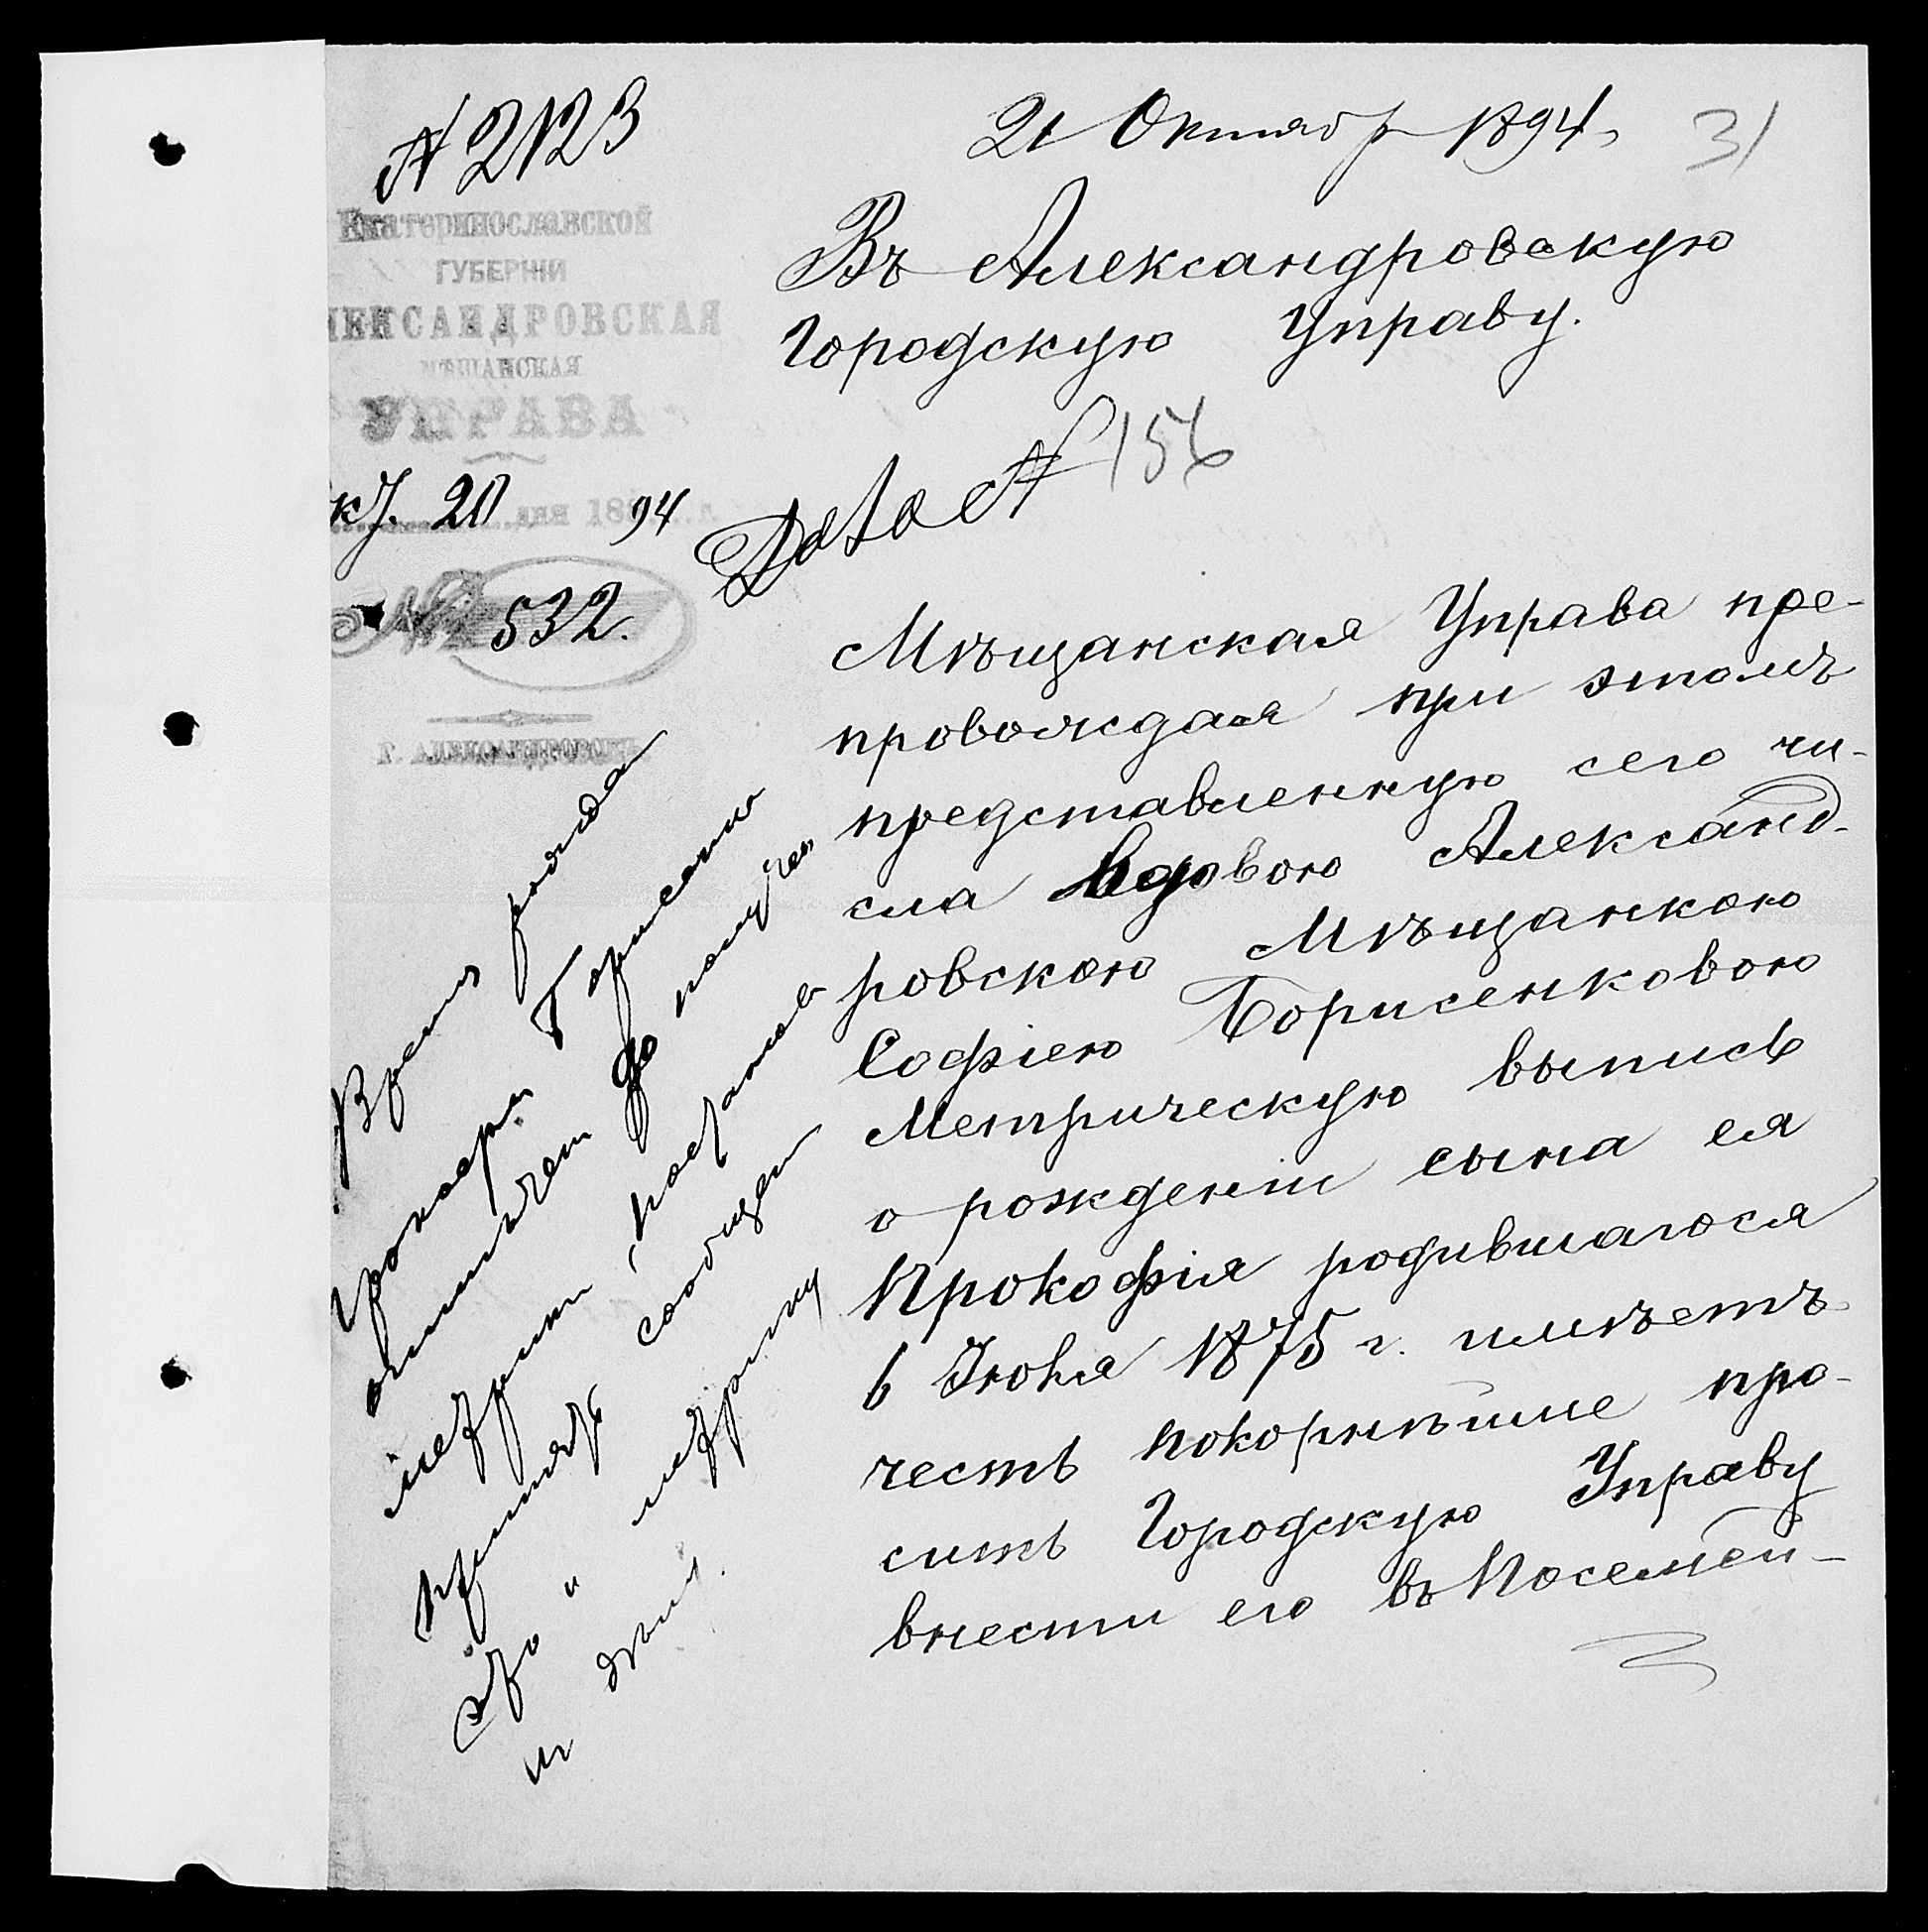 № 2123
21 Октябр 1894
31
Екатеринославской
ГУБЕРНІИ
ЛЕКСАНДРОВСКАЯ
МѢЩАНСКАЯ
УПРАВА
кт. 20 дня 1894 г.
№ 532.
Г. АЛЕКСАНДРОВСКЪ
Въ Александровскую
Городскую Управу.
Дѣло № 156
Мѣщанская Управа пре-
провождая при этомъ
представленную сего чи-
сла вдовою Александ-
ровскою Мѣщанкою
Софіею Борисенковою
Метрическую выпись
о рожденіи сына ея
Прокофія родившагося
6 Іюня 1875 г. имѣетъ
честь покорнѣйше про-
сить Городскую Управу
внести его въ Посемей-
Время рожде
Прокофи Борисенко
отмѣчен до получен
метрики
сообщен
что и метрику